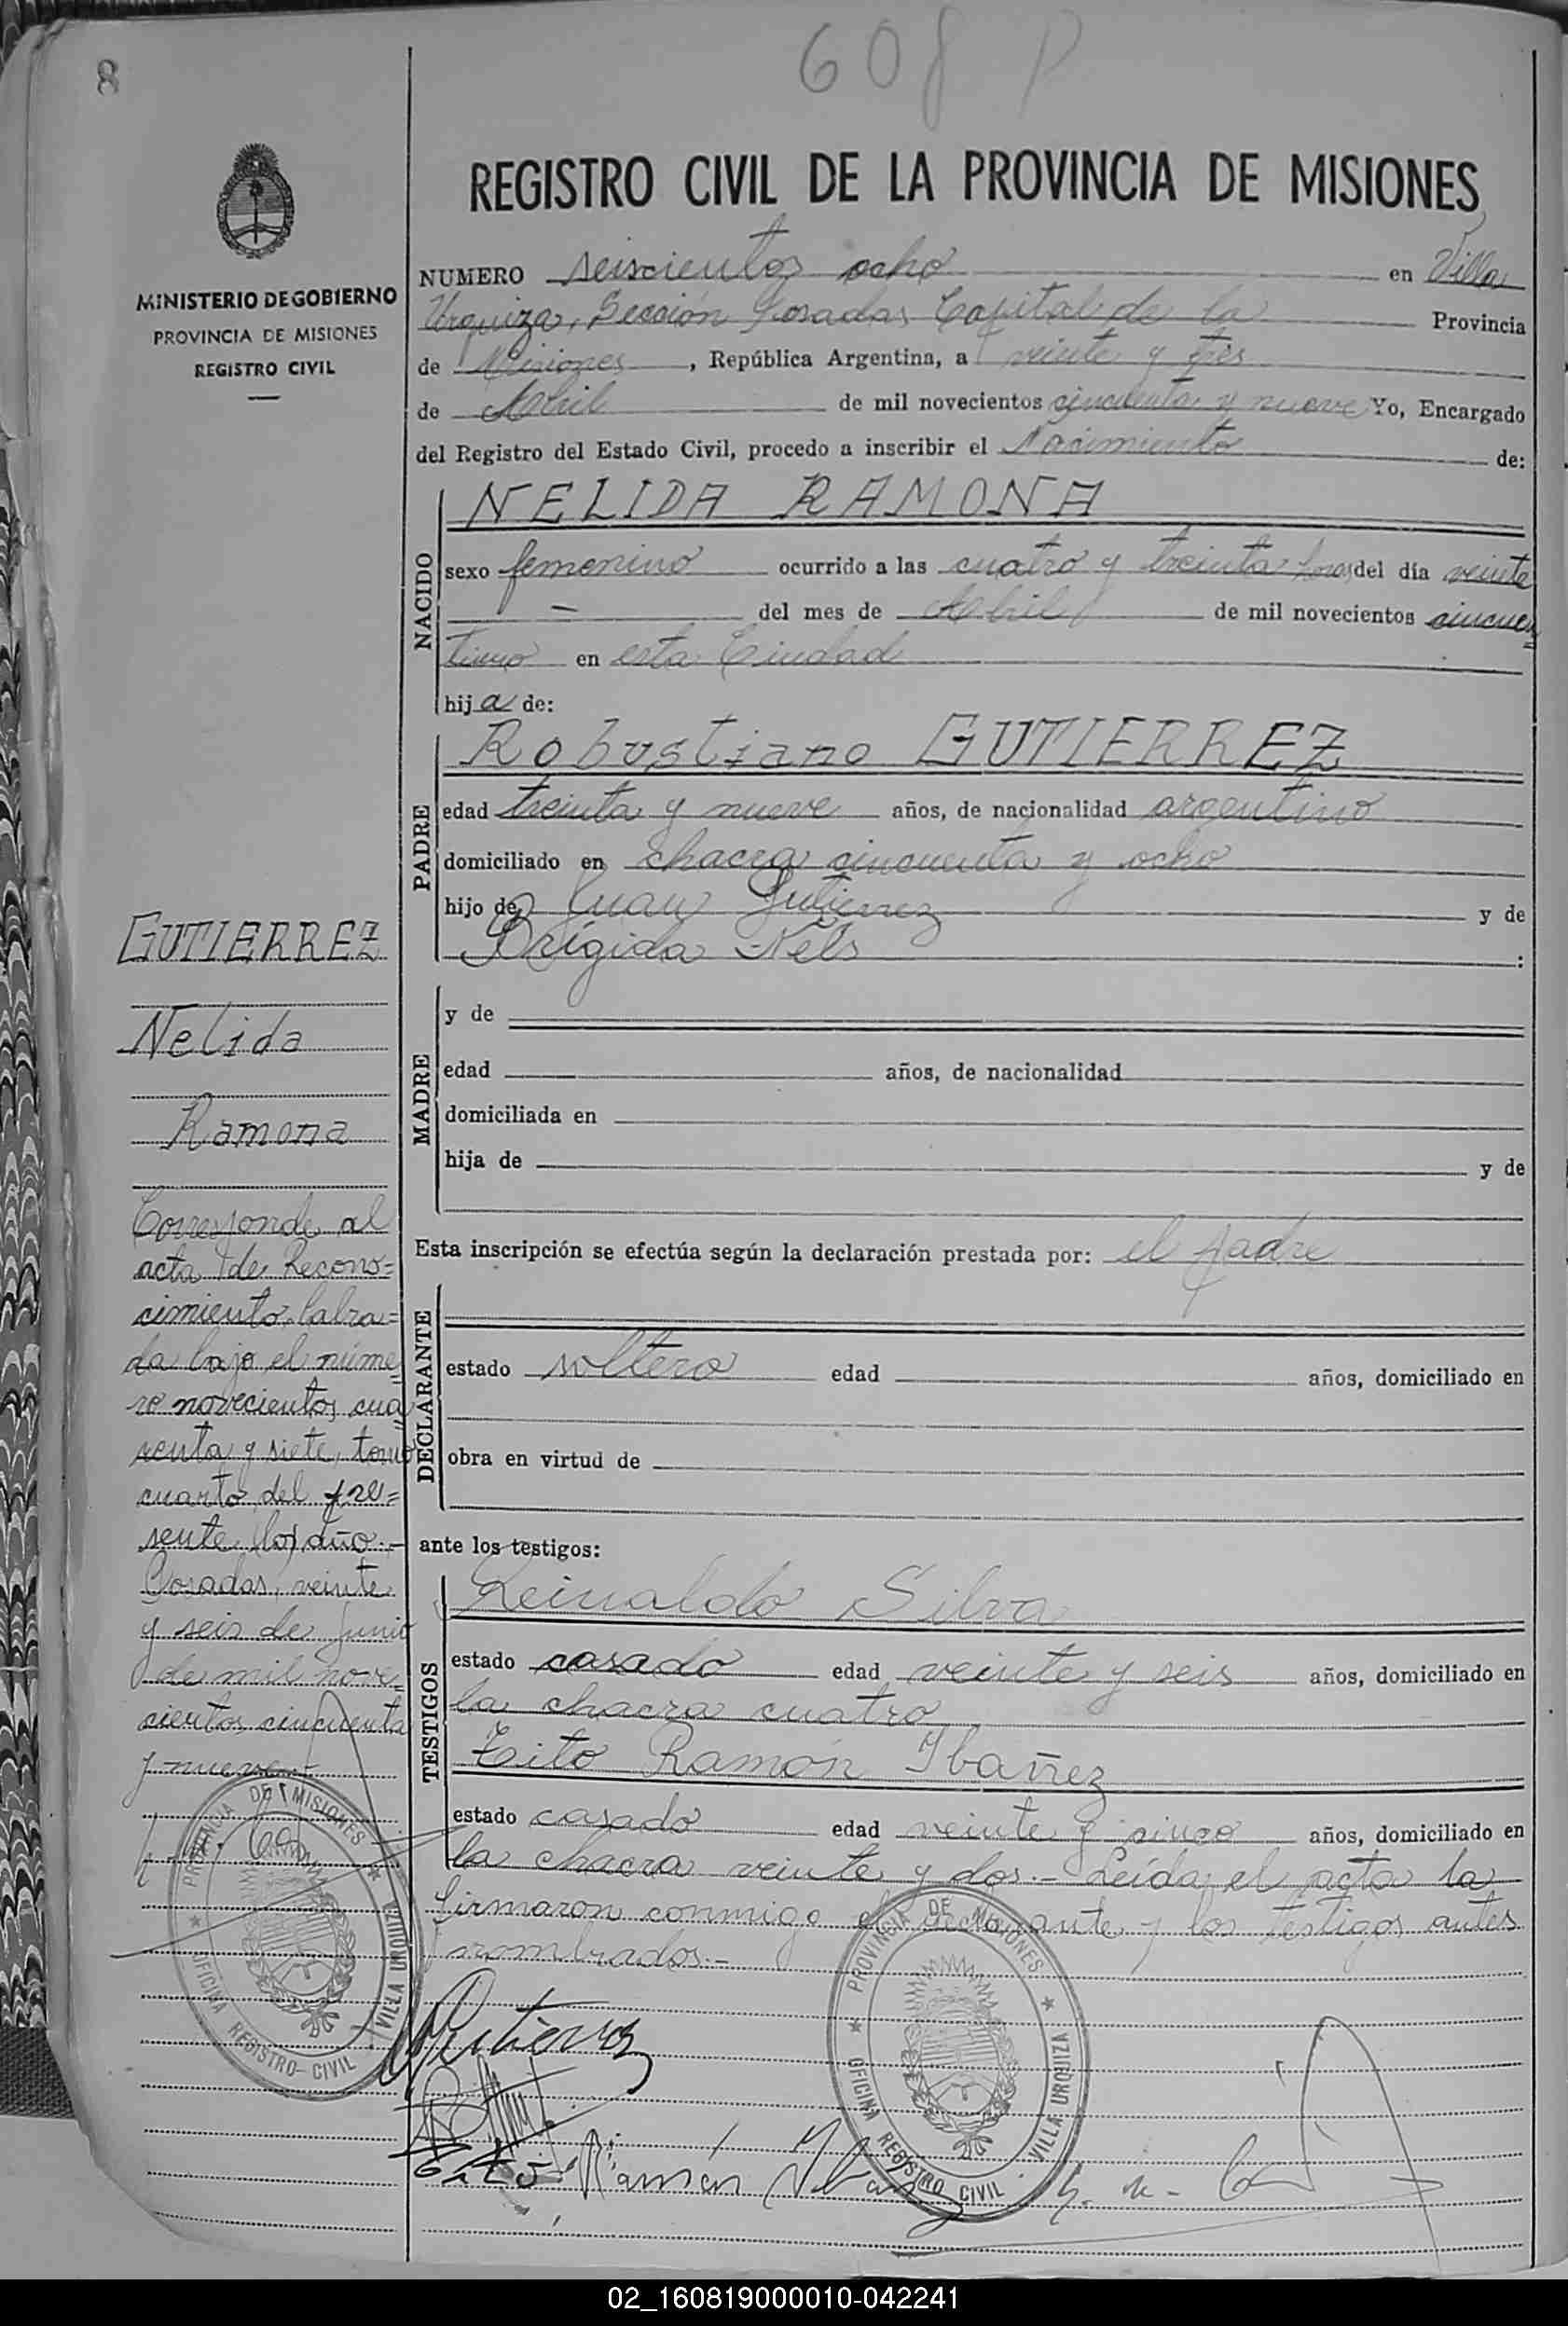 608 P
8
REGISTRO CIVIL DE LA PROVINCIA DE MISIONES
MINISTERIO DE GOBIERNO
PROVINCIA DE MISIONES
REGISTRO CIVIL
NUMERO seiscientos ocho en Villa
Urquiza, Sección Posadas Capital de la Provincia
de Misiones, República Argentina, a veinte y tres
de Abril de mil novecientos cincuenta y nueve Yo, Encargado
del Registro del Estado Civil, procedo a inscribir el Nacimiento de:
NACIDO
NELIDA RAMONA
sexo femenino ocurrido a las cuatro y treinta horas del día veinte
- del mes de Abril de mil novecientos cincuen
timo en esta Ciudad
hija de:
PADRE
Robustiano GUTIERREZ
edad treinta y nueve años, de nacionalidad argentino
domiciliado en chacra cincuenta y ocho
hijo de Juan Gutierrez y de
Brígida Nels :
MADRE
y de
edad años, de nacionalidad
domiciliada en
hija de y de
Esta inscripción se efectúa según la declaración prestada por: el padre
DECLARANTE
estado soltero edad años, domiciliado en
obra en virtud de
ante los testigos:
TESTIGOS
Reinaldo Silva
estado casado edad veinte y seis años, domiciliado en
la chacra cuatro
Tito Ramón Ibañez
estado casado edad veinte y cinco años, domiciliado en
la chacra veinte y dos.- Leída el acta la
firmaron conmigo el declarante y los testigos antes
nombrados.-
Gutierrez
Tito Ramón Ibañez
GUTIERREZ
Nelida
Ramona
Corresponde al
acta de Recono=
cimiento labra=
da bajo el núme=
ro novecientos cua=
renta y siete, tomo
cuarto del pre=
sente año.-
Posadas, veinte
y seis de Junio
de mil nove=
cientos cincuenta
y nueve.-
PROVINCIA DE MISIONES
OFICINA REGISTRO CIVIL VILLA URQUIZA
PROVINCIA DE MISIONES
OFICINA REGISTRO CIVIL VILLA URQUIZA
02_160819000010-042241